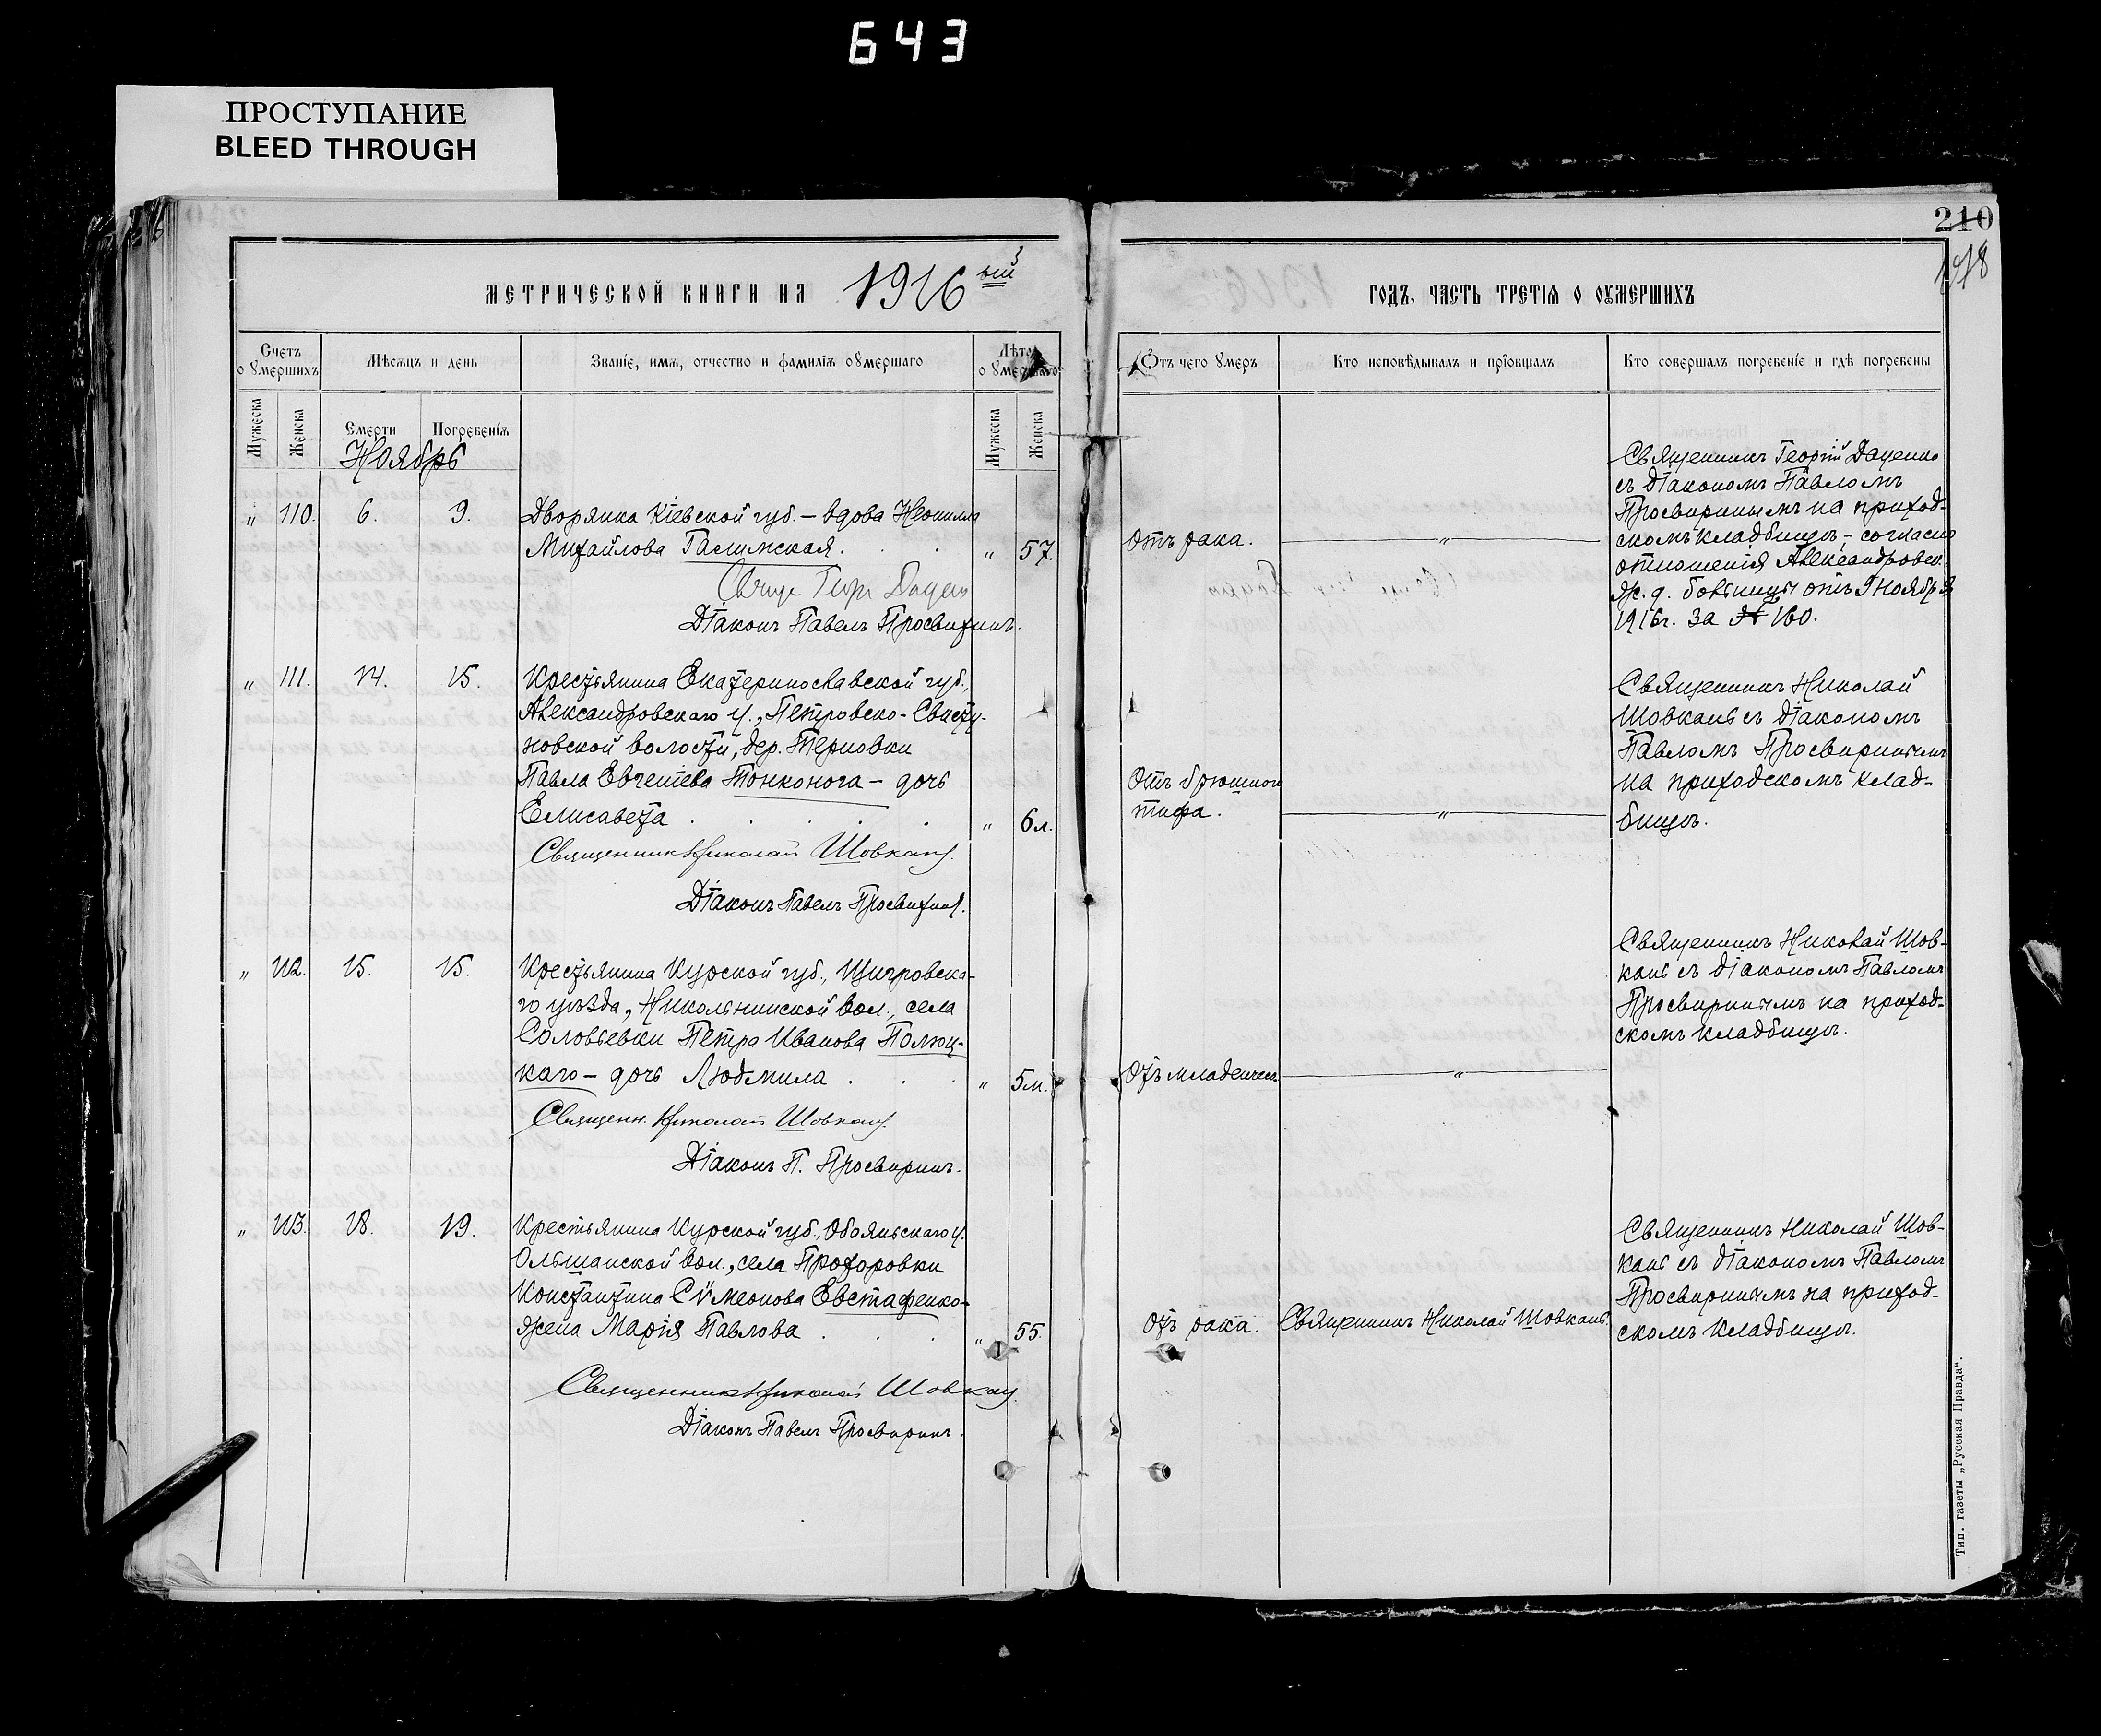 643
ПРОСТУПАНИЕ
BLEED THROUGH
210
МЕТРИЧЕСКОЙ КНИГИ НА 1916ый
ГОДЪ, ЧАСТЬ ТРЕТІЯ О ОУМЕРШИХЪ
Счетъ оумершихъ
Мѣсяцъ и день
Званіе, имя, отчество и фамилія оумершаго
Лѣта оумершаго
Отъ чего умеръ
Кто исповѣдывалъ и пріобщалъ
Кто совершалъ погребеніе и гдѣ погребены
Мужеска
Женска
Смерти
Погребенія
Мужеска
Женска
Ноябрь
„ 110. 6. 9.
Дворянка Кіевской губ. – вдова Неонилла
Михайлова
„ 57.
Отъ рака.
„
Священникъ Георгій Даценко
съ діакономъ Павломъ
Просвиринымъ на приход-
скомъ кладбищѣ, – согласно
отношенія Александровск.
ж. д. больницы отъ 9 ноября
1916г. за № 160.
Діаконъ Павелъ Просвиринъ.
„ 111. 14. 15.
Крестьянина Екатеринославской губ.,
Александровскаго у., Петровско-Свисту-
новской волости, дер. Терновки
Павла Евгеніева Тонконога – дочь
Елисавета
„ 6л.
Отъ брюшного
тифа.
„
Священникъ Николай
Шовкань съ діакономъ
Павломъ Просвиринымъ
на приходскомъ клад-
бищѣ.
Священникъ Николай Шовкань.
Діаконъ Павелъ Просвиринъ.
„ 112. 15. 15.
Крестьянина Курской губ., Щигровска-
го уѣзда, Никольнинской вол., села
Соловьевки Петра Иванова Полюц-
каго – дочь Людмила
„ 5м.
Отъ младенческ.
„
Священникъ Николай Шов-
кань съ діакономъ Павломъ
Просвиринымъ на приход-
скомъ кладбищѣ.
Священн. Николай Шовкань.
Діаконъ П. Просвиринъ.
„ 113. 18. 19.
Крестьянина Курской губ., Обояньскаго у.
Ольшанской вол., села Прохоровки
Константина Сѵмеонова Евстафенко –
жена Марія Павлова
„ 55.
Отъ рака.
Священникъ Николай Шовкань.
Священникъ Николай Шов-
кань съ діакономъ Павломъ
Просвиринымъ на приход-
скомъ кладбищѣ.
Священникъ Николай Шовкань.
Діаконъ Павелъ Просвиринъ.
Тип. газеты „Русская Правда“.